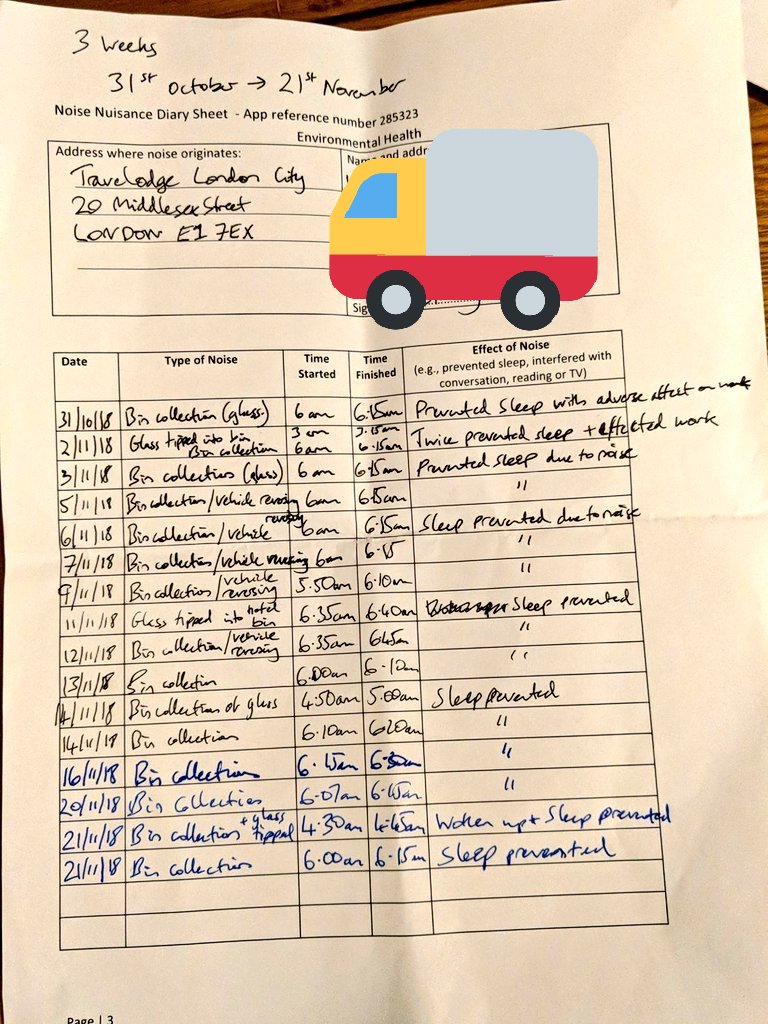 3 weeks
31st October → 21st November
Noise Nuisance Diary Sheet - App reference number 285323
Environmental Health
Address where noise originates:
Travelodge London City
20 Middlesex Street
LONDON E1 7EX
Name and addr
Sig
Date Type of Noise Time Started Time Finished Effect of Noise (e.g., prevented sleep, interfered with conversation, reading or TV)
31/10/18 Bin collection (glass) 6am 6.15am Prevented Sleep with adverse affect on work
2/11/18 Glass tipped into bin 3am 3.15am Twice prevented sleep + affected work
Bin collection 6am 6.15am
3/11/18 Bin collections (glass) 6am 6.15am Prevented sleep due to noise
5/11/18 Bin collection/vehicle reversing 6am 6.15am "
6/11/18 Bin collection/vehicle reversing 6am 6.15am Sleep prevented due to noise
7/11/18 Bin collection/vehicle reversing 6am 6.15 "
9/11/18 Bin collection/vehicle reversing 5.50am 6.10am "
11/11/18 Glass tipped into hotel bin 6.35am 6.40am Sleep prevented
12/11/18 Bin collection/vehicle reversing 6.35am 6.45am "
13/11/18 Bin collection 6.00am 6.10am "
14/11/18 Bin collection of glass 4.50am 5.00am Sleep prevented
14/11/18 Bin collection 6.10am 6.20am "
16/11/18 Bin collections 6.15am "
20/11/18 Bin collections 6.07am 6.15am "
21/11/18 Bin collections + glass tipped 4.30am 4.45am Woken up + Sleep prevented
21/11/18 Bin collections 6.00am 6.15am Sleep prevented
Page | 3